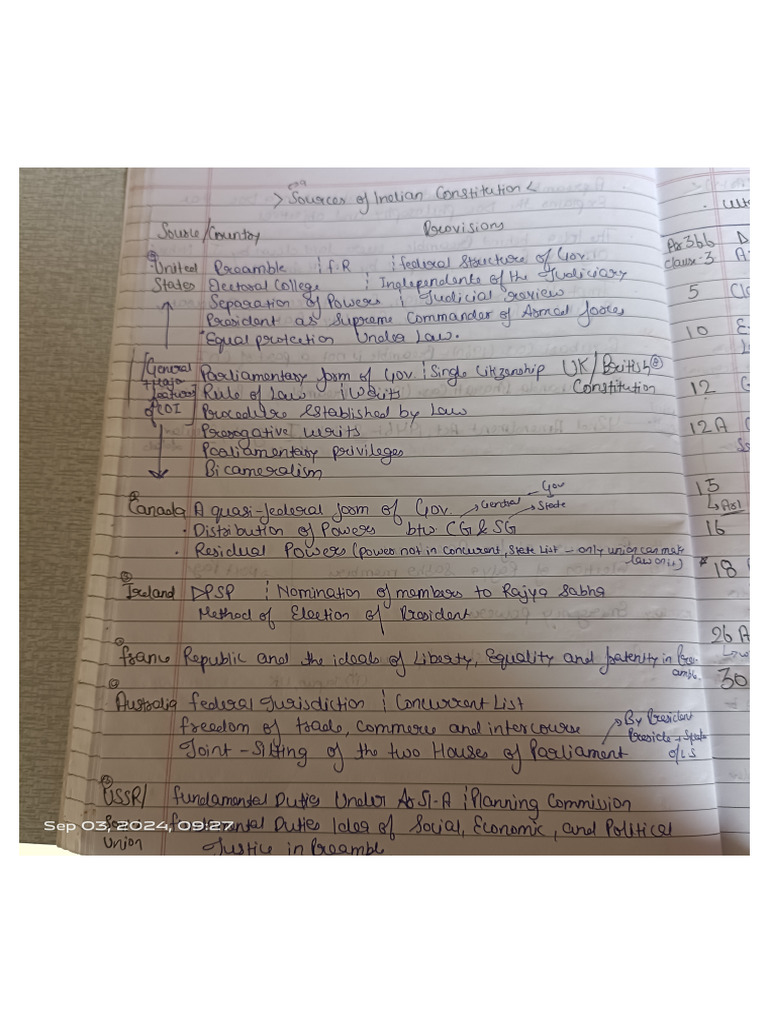 > Sources of Indian Constitution <
Source/Country Provisions
United Preamble ¦ F.R ¦ federal Structure of Gov.
States Electoral College ¦ Independente of the Judiciary
Separation of Powers ¦ Judicial review
President as Supreme Commander of Armed forces
Equal protection Under Law.
General Parliamentary form of Gov. ¦ Single Citizenship UK/British
+ Major features Rule of Law ¦ Writs Constitution
of COI Procedure established by Law
Prerogative writs
Parliamentary privileges
Bicameralism
Canada A quasi-federal form of Gov. → Central → Gov
→ State
• Distribution of Powers btw CG & SG
• Residual Powers (Power not in Concurrent, State List - only union can make law on it)
Ireland DPSP ¦ Nomination of members to Rajya Sabha
Method of Election of President
france Republic and the ideals of Liberty, Equality and fraternity in Pre-
amble.
Australia federal Jurisdiction ¦ Concurrent List
freedom of trade, commerce and intercourse → By President
Joint-Sitting of the two Houses of Parliament Preside → Speaker
o/LS
USSR/ fundamental Duties Under Ar 51-A ¦ Planning Commission
fundamental Duties Idea of Social, Economic, and Political
Union Justice in Preambl
Sep 03, 2024, 09:27
Ar 366
Clause-3
5
10
12
12A
15
↳ Ar 1
16
18
26 A
30